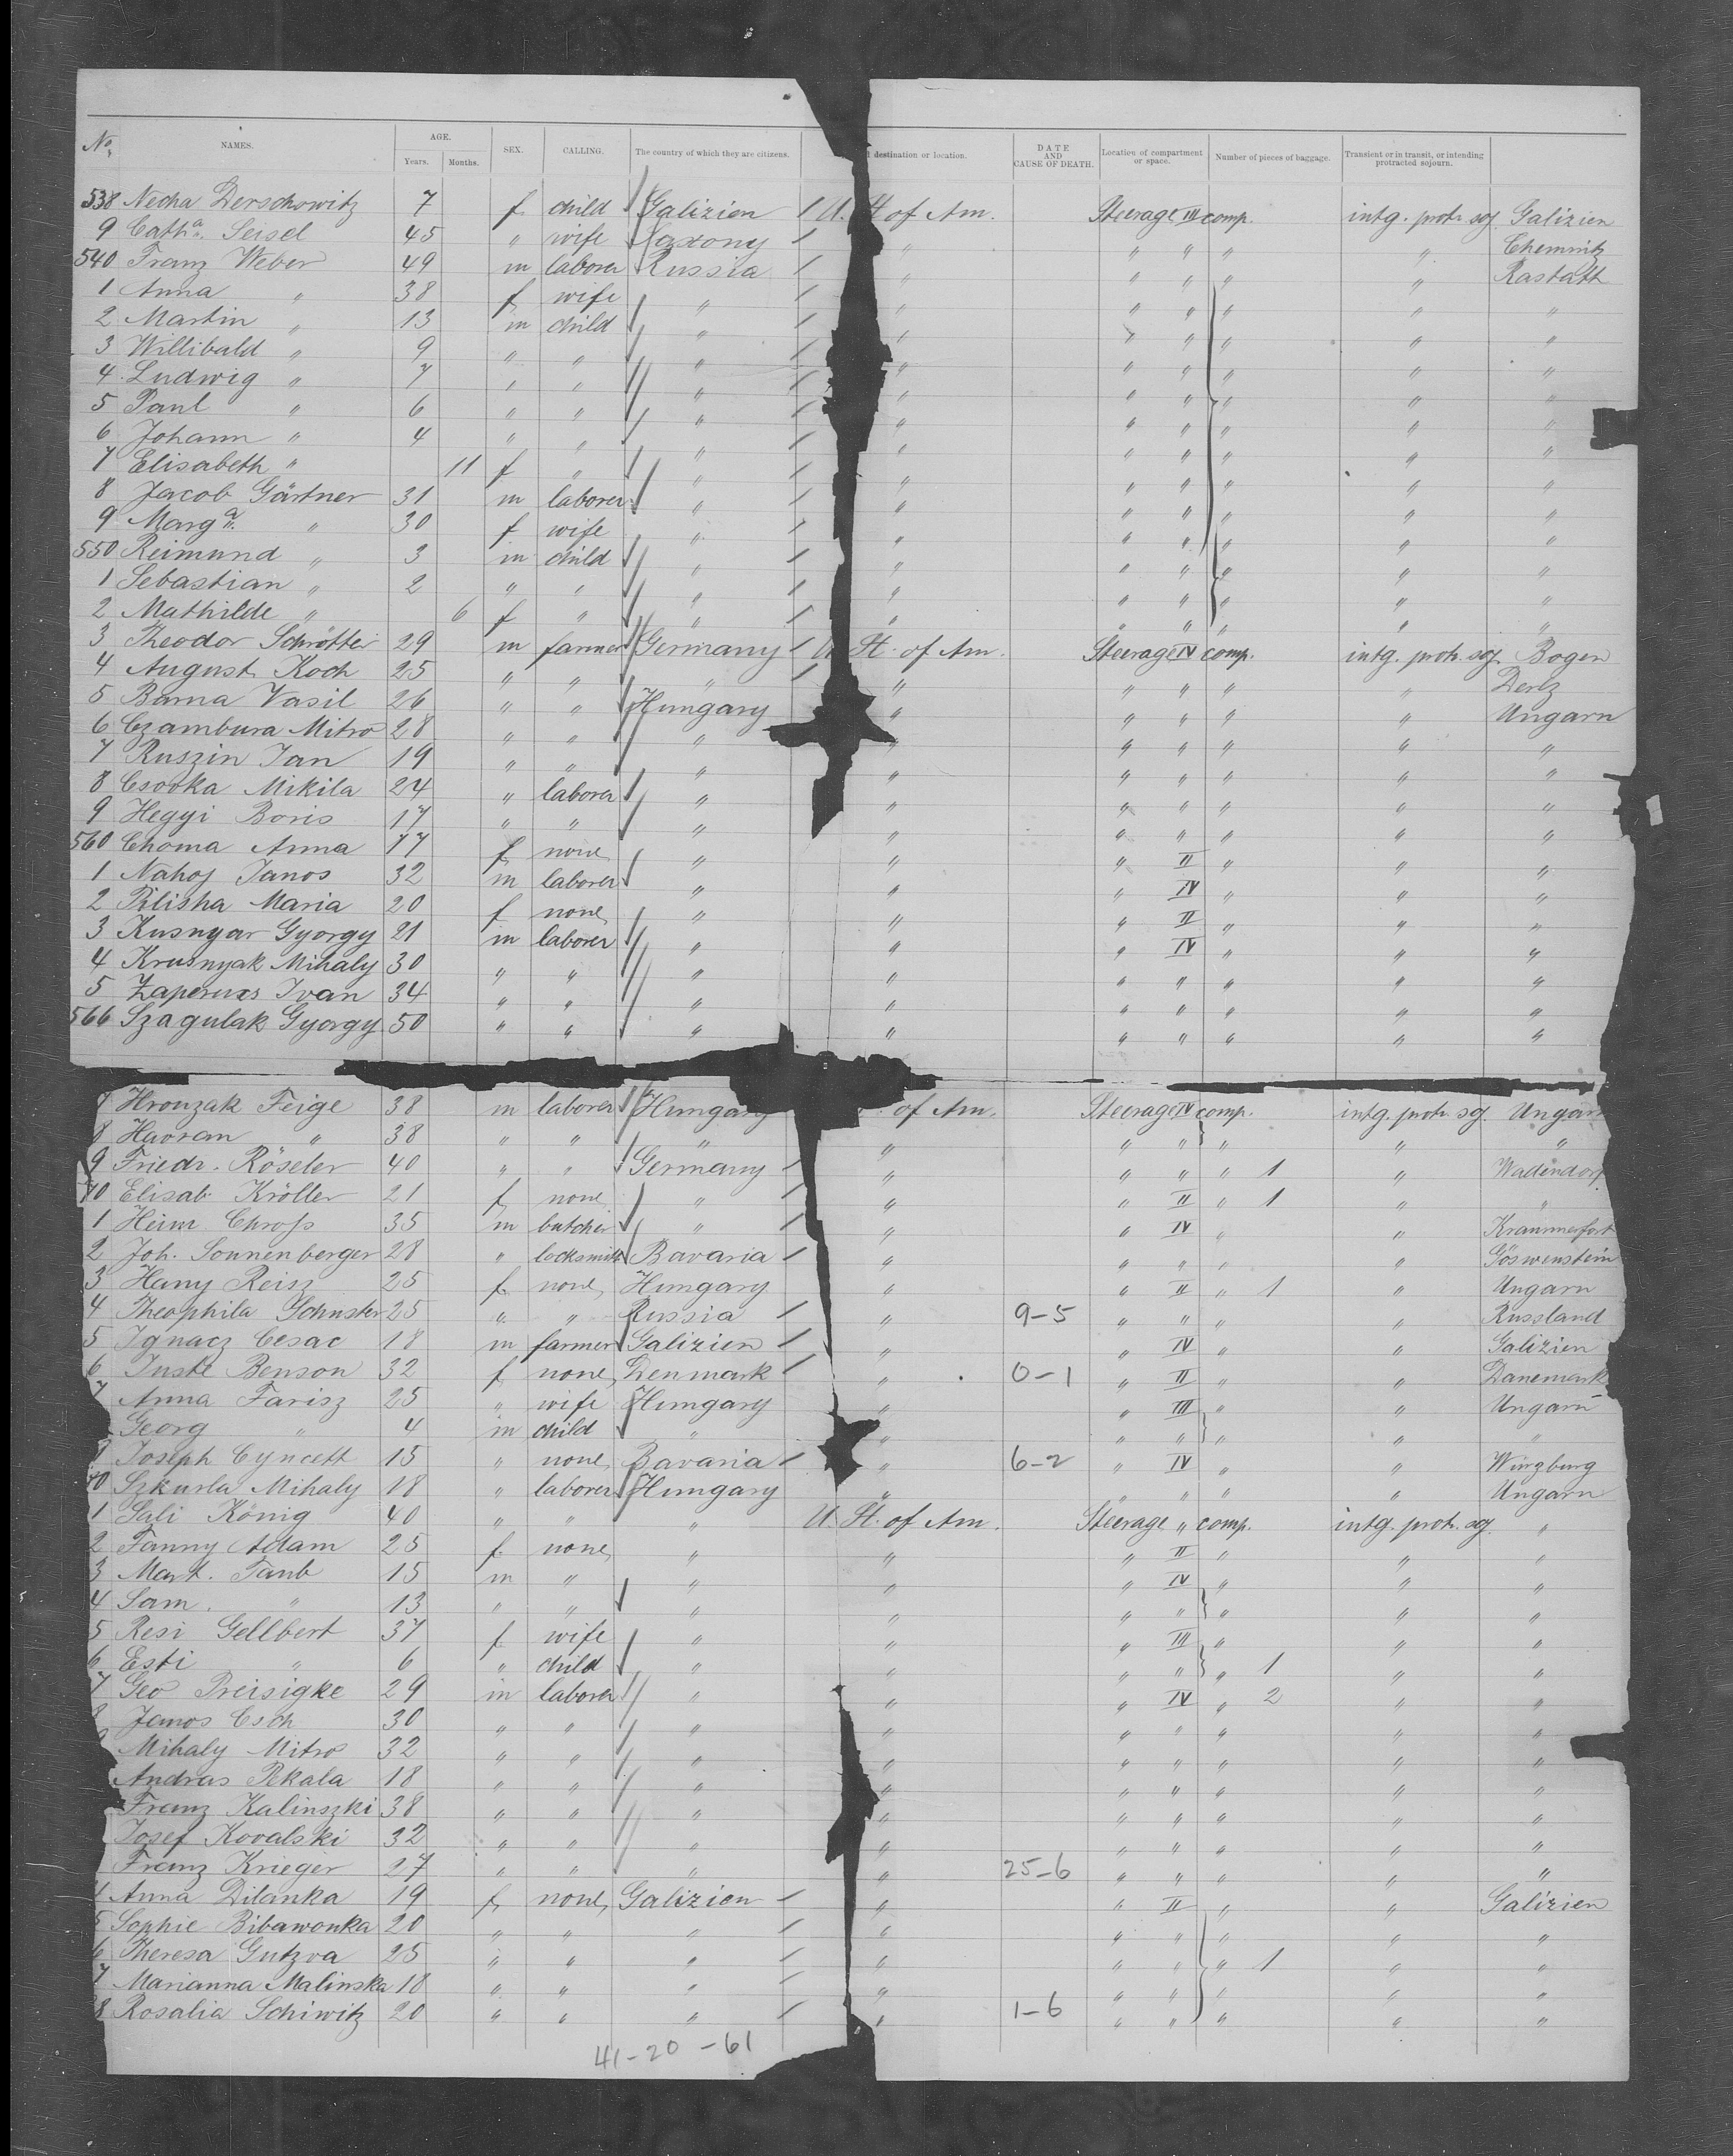 No. NAMES. AGE. Years. Months. SEX. CALLING. The country of which they are citizens. destination or location. DATE AND CAUSE OF DEATH. Location of compartment or space. Number of pieces of baggage. Transient or in transit, or intending protracted sojourn.
538 Necha Derschowitz 7 f child Galizien U. St of Am. Steerage III comp. intg. protr. soj. Galizien
9 Cath.a Seisel 45 " wife Saxony " " " " " Chemnitz
540 Franz Weber 49 m laborer Russia " " " " " Rastatt
1 Anna " 38 f wife " " " " " " "
2 Martin " 13 m child " " " " " " "
3 Willibald " 9 " " " " " " " " "
4 Ludwig " 7 " " " " " " " " "
5 Paul " 6 " " " " " " " " "
6 Johann " 4 " " " " " " " " "
7 Elisabeth " 11 f " " " " " " " "
8 Jacob Gärtner 31 m laborer " " " " " " "
9 Marg.a " 30 f wife " " " " " " "
550 Reimund " 3 m child " " " " " " "
1 Sebastian " 2 " " " " " " " " "
2 Mathilde " 6 f " " " " " " " "
3 Theodor Schrötter 29 m farmer Germany U. St. of Am. Steerage IV comp. intg. protr. soj. Bogen
4 August Koch 25 " " " " " " " "
5 Barna Vasil 26 " " Hungary " " " " " Ungarn
6 Czambura Mitro 28 " " " " " " " " "
7 Ruszin Jan 19 " " " " " " " " "
8 Csooka Mikila 24 " laborer " " " " " " "
9 Hegyi Boris 17 " " " " " " " " "
560 Choma Anna 17 f none " " " II " " "
1 Nahoj Janos 32 m laborer " " " IV " " "
2 Pilisha Maria 20 f none " " " II " " "
3 Kusnyar Gyorgy 21 m laborer " " " IV " " "
4 Krusnyak Mihaly 30 " " " " " " " " "
5 Ivan 34 " " " " " " " " "
566 Szagulak Gyorgy 50 " " " " " " " " "
7 Hronzak Feige 38 m laborer Hungary of Am. Steerage IV comp. intg. protr. soj. Ungarn
8 Havran " 38 " " " " " " " " "
9 Friedr. Röseler 40 " " Germany " " " " 1 " Wadendorf
70 Elisab. Kröller 21 f none " " " II " 1 " "
1 Heinr. Chross 35 m butcher " " " IV " "
2 Joh. Sonnenberger 28 " locksmith Bavaria " " " " " Göswenstein
3 Hany Reisz 25 f none Hungary " " II " 1 " Ungarn
4 Theophila Schuster 25 " " Russia " 9-5 " " " " Russland
5 Ignacz Cesac 18 m farmer Galizien " " IV " " Galizien
6 Juste Benson 32 f none Denmark " 0-1 " II " " Danemark
7 Anna Farisz 25 " wife Hungary " " III " " Ungarn
Georg " 4 m child " " " " " " "
9 Joseph Cyncett 15 " none Bavaria " 6-2 " IV " " Würzburg
Szkurla Mihaly 18 " laborer Hungary " " " " " Ungarn
1 Sali König 40 " " " U. St. of Am. Steerage " comp. intg. protr. soj. "
2 Fanny Adam 25 f none " " " II " " "
3 Mart. Taub 15 m " " " " IV " " "
4 Sam. " 13 " " " " " " " " "
5 Resi Gellbert 37 f wife " " " III " " "
6 Esti " 6 " child " " " " " 1 " "
7 Geo Preisigke 29 m laborer " " " IV " 2 " "
Janos Csch 30 " " " " " " " " "
Mihaly Mitro 32 " " " " " " " " "
Andras Pekala 18 " " " " " " " " "
Franz Kalinszki 38 " " " " " " " " "
Josef Kovalski 32 " " " " " " " " "
Franz Krieger 27 " " " " 25-6 " " " " "
Anna Dilanka 19 f none Galizien " " II " " Galizien
5 Sophie Bibawonka 20 " " " " " " " " "
6 Theresa Gutzva 25 " " " " " " " 1 " "
7 Marianna Malinska 18 " " " " " " " " "
8 Rosalia Schiwitz 20 " " " " 1-6 " " " " "
41-20-61